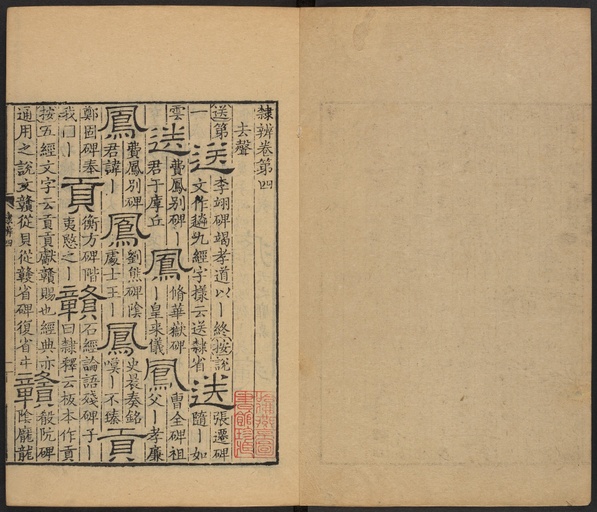 隸辨卷第四
去聲
送第一
送 李翊碑竭孝道以丨終按說文作䢠九經字樣云送隸省
送 張遷碑隨丨如雲
送 費鳳別碑丨君于厚丘
鳳 脩華嶽碑丨皇來儀
鳳 曹全碑祖父丨孝廉
鳳 費鳳別碑君諱丨
鳳 劉熊碑陰處士王丨
鳳 史晨奏銘嘆丨不臻
貢 鄭固碑奉我囗丨
貢 衡方碑階夷愍之丨
贛 石經論語殘碑子丨曰隸釋云板本作貢
按五經文字云貢貢獻贛賜也經典亦通用之說文贛從貝從竷省碑復省夂
贛 殽阬碑陰龐龍
隸辨四